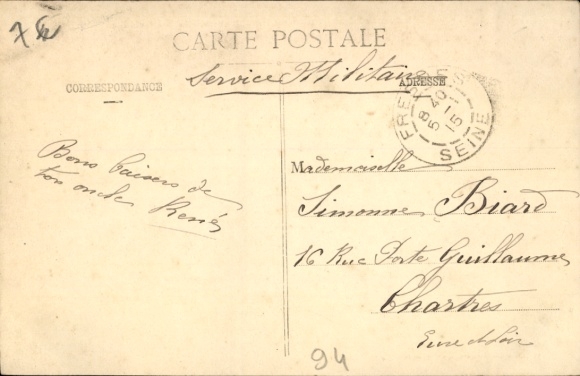 CARTE POSTALE
Service Militaire
CORRESPONDANCE
ADRESSE
FRESNES
8 40
5 - 1
15
SEINE
Bons baisers de
ton oncle René
Mademoiselle
Simonne Biard
16 Rue Porte Guillaume
Chartres
Eure et Loir
94